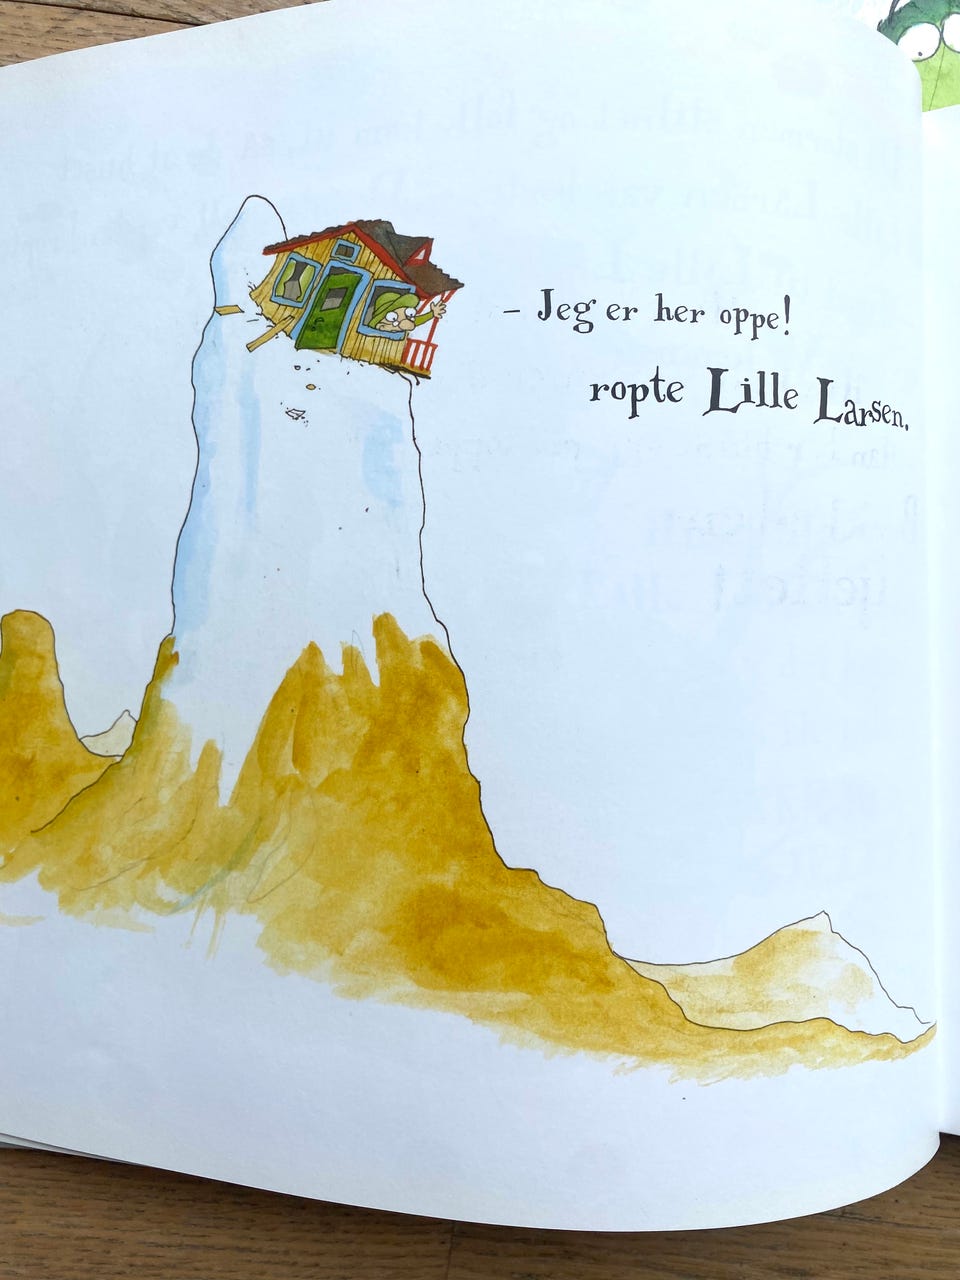 – Jeg er her oppe!
ropte Lille Larsen.